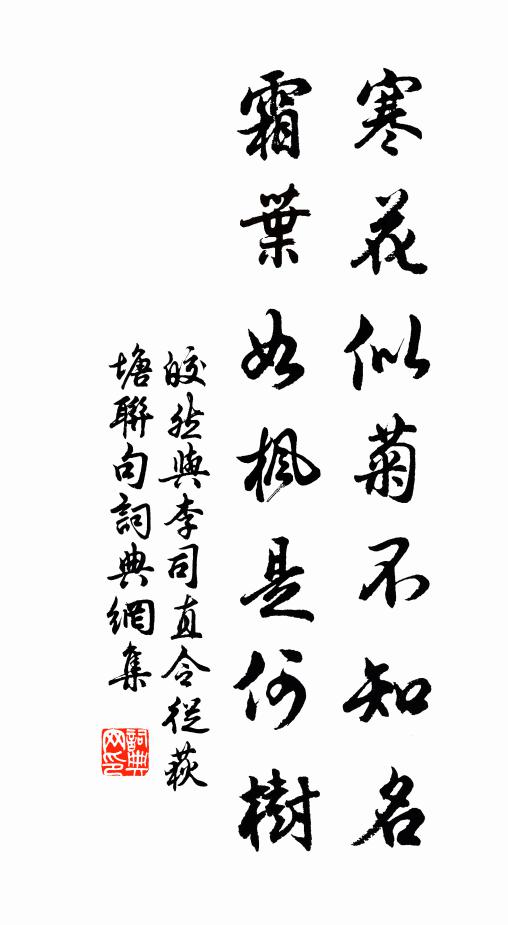 寒花似菊不知名
霜葉如楓是何樹
皎然與李司直令從荻
塘聯句詞典網集
詞典
网印